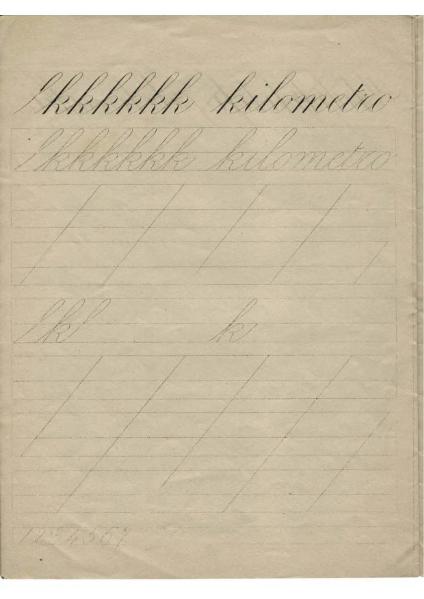 lkkkkkk kilometro
lkkkkkk kilometro
lkl k
1234567